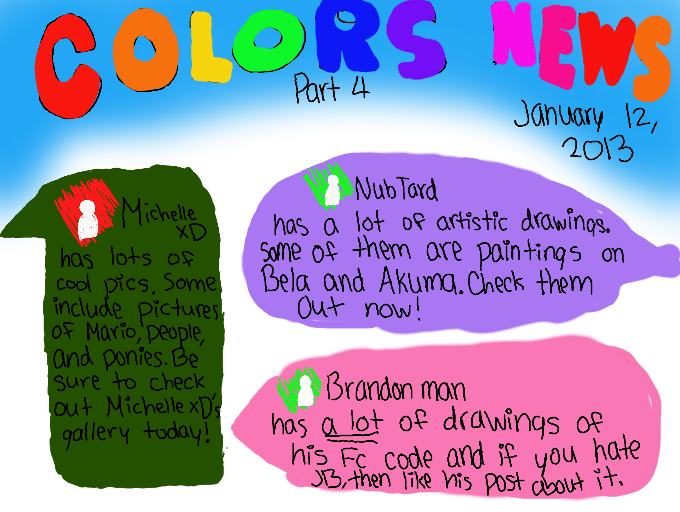 COLORS NEWS
Part 4
January 12,
2013
Michelle
xD
has lots of
cool pics. Some
include pictures
of Mario, people,
and ponies. Be
sure to check
out Michelle xD's
gallery today!
NubTard
has a lot of artistic drawings.
Some of them are paintings on
Bela and Akuma. Check them
Out now!
Brandon man
has a lot of drawings of
his Fc code and if you hate
JB, then like his post about it.